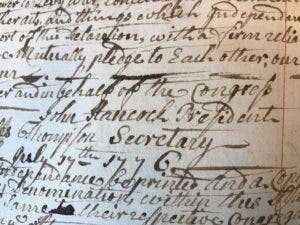 and things which Independant
ort of this Declaration, with a firm relia
Mutually pledge to Each other, our
er and in behalf of the Congress
John Hancock President
Thompson Secretary
July 17th 1776
ependance be printed and a Copy
Denomination, within this
same to their respective Congre